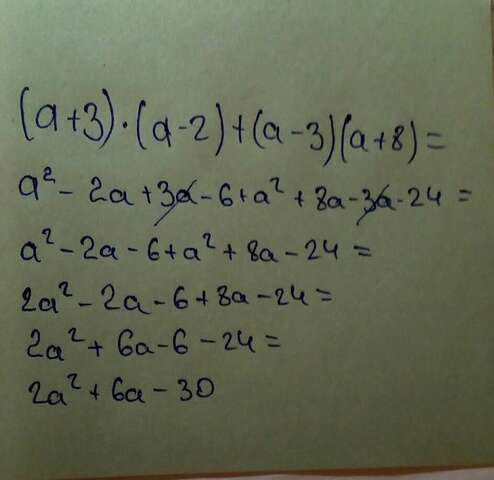 (a+3)·(a-2)+(a-3)(a+8)=
a² - 2a + 3a - 6 + a² + 8a - 3a - 24 =
a² - 2a - 6 + a² + 8a - 24 =
2a² - 2a - 6 + 8a - 24 =
2a² + 6a - 6 - 24 =
2a² + 6a - 30